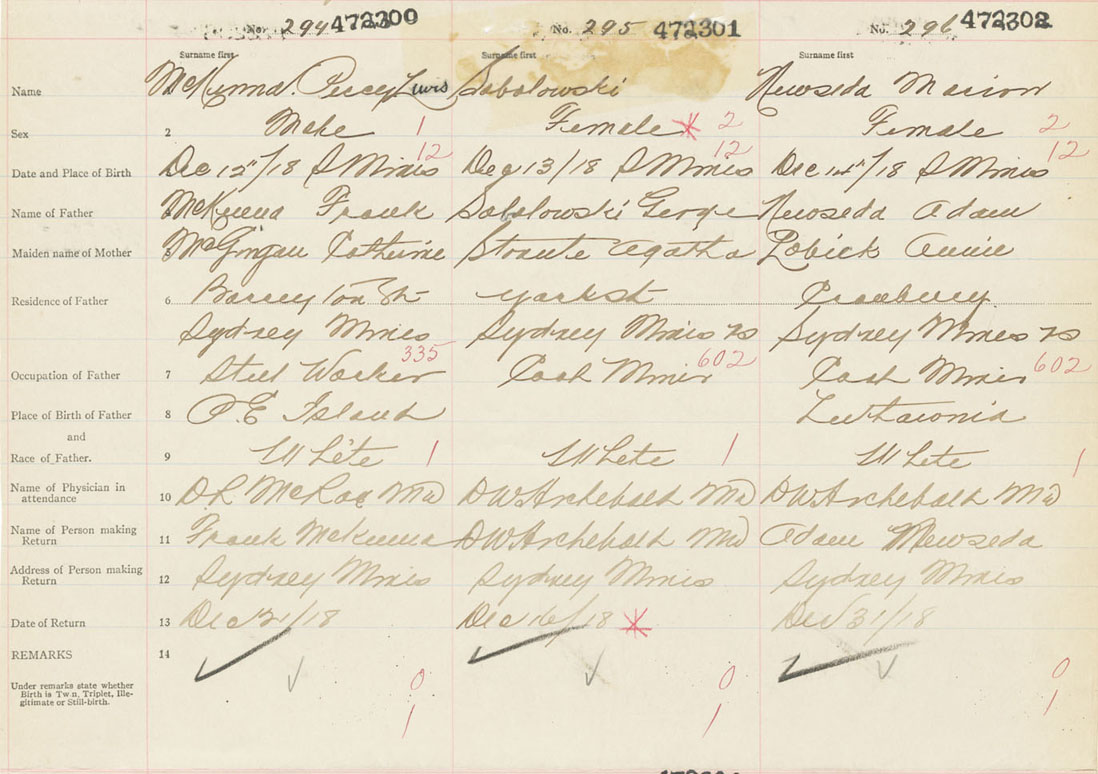 No. 294 472300 No. 295 472301 No. 296 472302
Surname first Surname first Surname first
Name McKenna Percy Lewis Sobolowski Newseda Marion
Sex 2 Male 1 Female 2 Female 2
12 12 12
Date and Place of Birth Dec 12/18 S Mines Dec 13/18 S Mines Dec 14/18 S Mines
Name of Father McKenna Frank Sobolowski George Newseda Adam
Maiden name of Mother Catherine Straute Agatha Zobick Annie
Residence of Father 6 Barrington St York st Cranberry
Sydney Mines Sydney Mines NS Sydney Mines NS
335 602 602
Occupation of Father 7 Steel Worker Coal Miner Coal Miner
Place of Birth of Father 8 P.E Island Luthawnia
and
Race of Father. 9 White 1 White 1 White 1
Name of Physician in
attendance 10 D R McRae Md DW Archebald Md DW Archebald Md
Name of Person making
Return 11 Frank McKenna DW Archebald Md Adam Newseda
Address of Person making
Return 12 Sydney Mines Sydney Mines Sydney Mines
Date of Return 13 Dec 21/18 Dec 16/18 Dec 31/18
REMARKS 14
Under remarks state whether
Birth is Twin, Triplet, Ille-
gitimate or Still-birth.
0 0 0
1 1 1